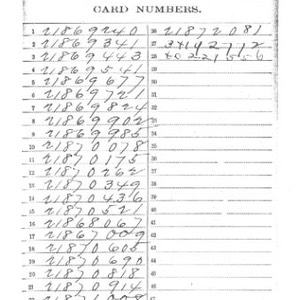 CARD NUMBERS.
1 21869240
2 21869341
3 21869443
4 21869541
5 21869677
6 21869721
7 21869824
8 21869902
9 21869985
10 21870078
11 21870175
12 21870262
13 21870349
14 21870436
15 21870521
16 21868067
17 21867009
18 21870605
19 21870690
20 21870818
21 21870914
26 21872081
27
28
29
30
31
32
33
34
35
36
37
38
39
40
41
42
43
44
45
46
47